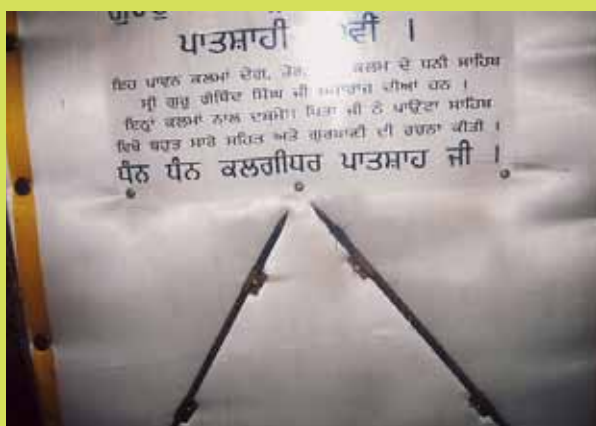 ਪਾਤਸ਼ਾਹੀ ਵੀਂ ।
ਇਹ ਪਾਵਨ ਕਲਮਾਂ ਦੇਗ, ਤੇਗ, ਕਲਮ ਦੇ ਧਨੀ ਸਾਹਿਬ
ਸ੍ਰੀ ਗੁਰੂ ਗੋਬਿੰਦ ਸਿੰਘ ਜੀ ਮਹਾਰਾਜ ਦੀਆਂ ਹਨ ।
ਇਨ੍ਹਾਂ ਕਲਮਾਂ ਨਾਲ ਦਸਮੇਸ਼ ਪਿਤਾ ਜੀ ਨੇ ਪਾਉਂਟਾ ਸਾਹਿਬ
ਵਿਖੇ ਬਹੁਤ ਸਾਰੇ ਸਹਿਤ ਅਤੇ ਗੁਰਬਾਣੀ ਦੀ ਰਚਨਾ ਕੀਤੀ ।
ਧੰਨ ਧੰਨ ਕਲਗੀਧਰ ਪਾਤਸ਼ਾਹ ਜੀ ।